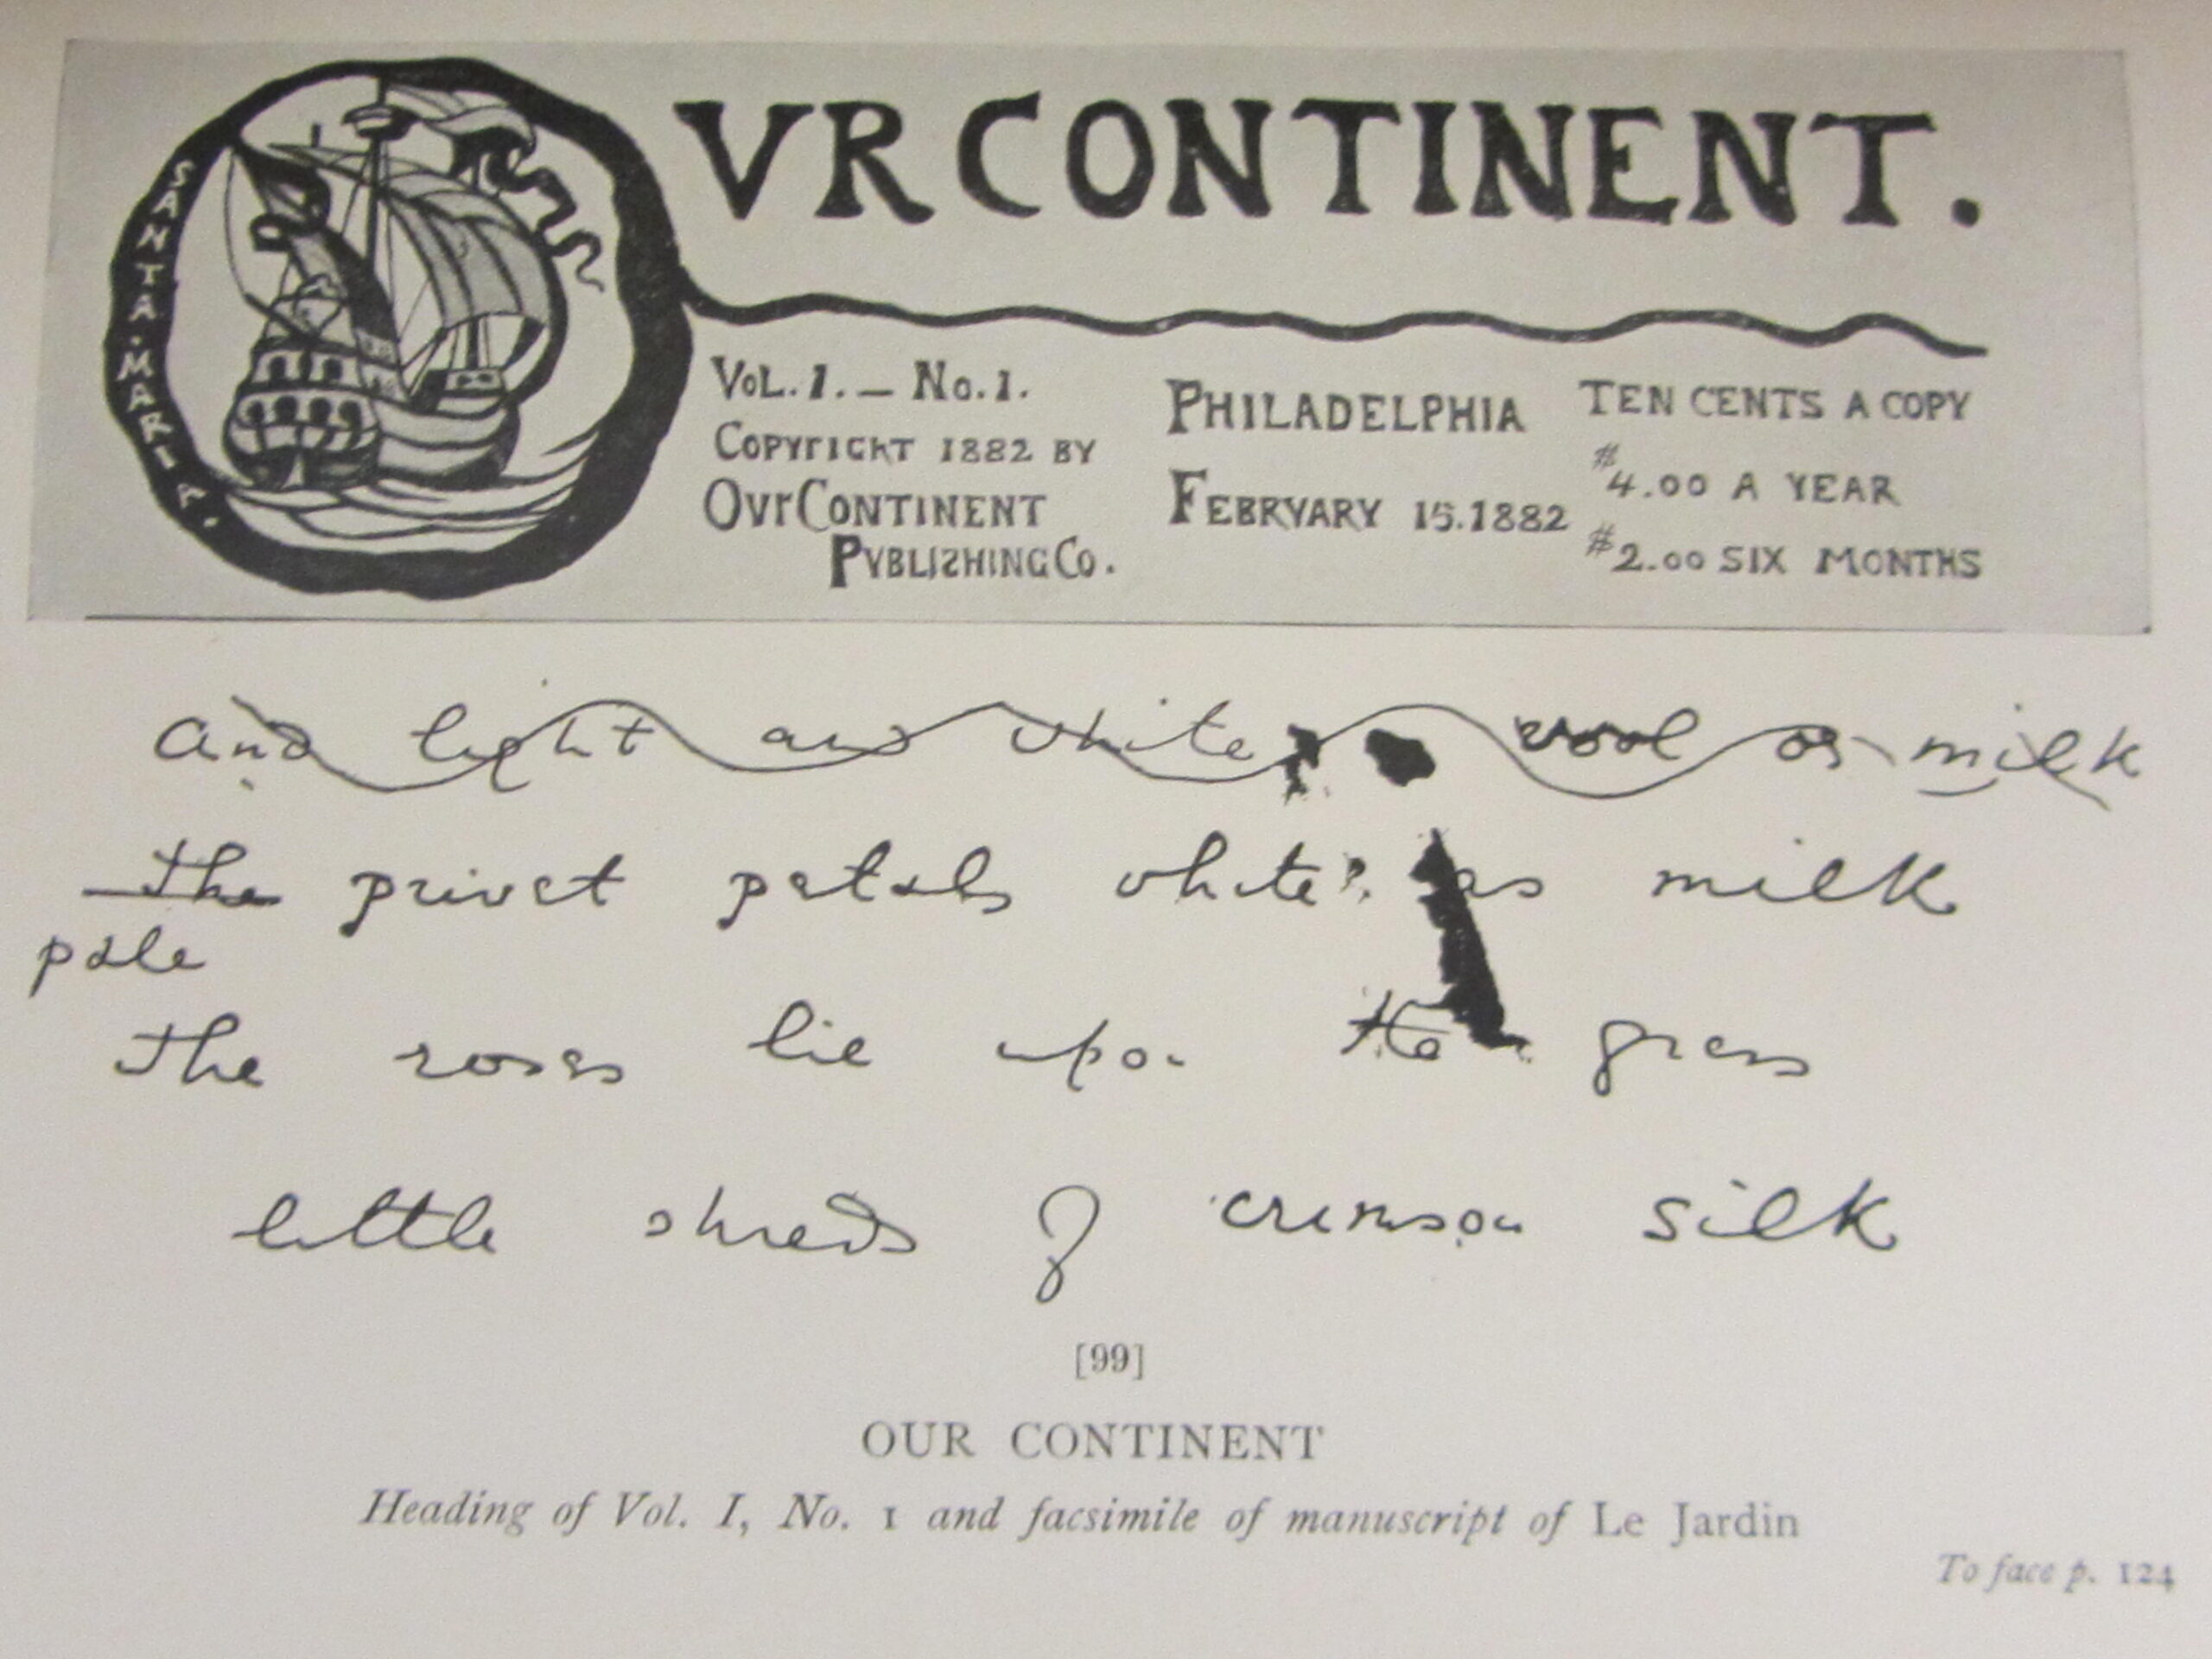 OVR CONTINENT.
SANTA·MARIA.
VOL. 1. — No. 1.
COPYRIGHT 1882 BY
OVR CONTINENT
PVBLISHING CO.
PHILADELPHIA
FEBRVARY 15.1882
TEN CENTS A COPY
$4.00 A YEAR
$2.00 SIX MONTHS
and light and white wool or milk
The privet petals white as milk
pale
The roses lie upon the grass
little shreds of crimson silk
[99]
OUR CONTINENT
Heading of Vol. I, No. 1 and facsimile of manuscript of Le Jardin
To face p. 124